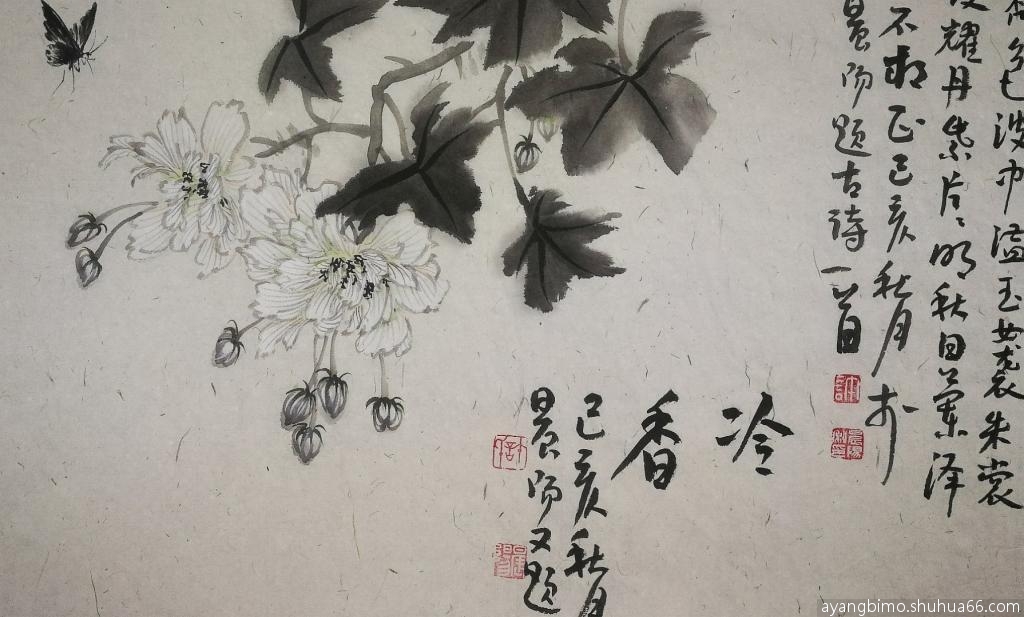 波巾溢玉女袭朱裳
耀丹紫片片明秋日兰泽
不 己亥秋月於
晨阳题古诗一首
冷香
己亥秋月
晨阳又题
ayangbimo.shuhua66.com